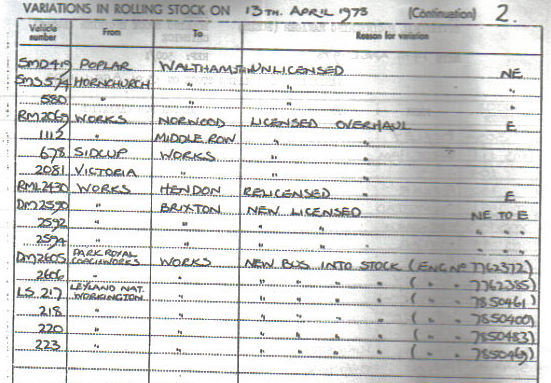 VARIATIONS IN ROLLING STOCK ON 13TH. APRIL 1978 (Continuation) 2.
Vehicle number From To Reason for variation
SMD419 POPLAR WALTHAMSTW UNLICENSED NE
SMS574 HORNCHURCH " " "
580 " " " "
RM2069 WORKS NORWOOD LICENSED OVERHAUL E
1112 " MIDDLE ROW " "
678 SIDCUP WORKS " "
2081 VICTORIA " " "
RML2430 WORKS HENDON RELICENSED " E
DM2590 " BRIXTON NEW LICENSED NE TO E
2592 " " " " " " "
2594 " " " " " " "
DM2605 PARK ROYAL COACHWORKS WORKS NEW BUS INTO STOCK (ENG Nº 7762372)
2606 " " " " " " ( " " 7762385)
LS 217 LEYLAND NAT. WORKINGTON " " " " " ( " " 7850461)
218 " " " " " " ( " " 7850400)
220 " " " " " " ( " " 7850483)
223 " " " " " " ( " " 7850469)